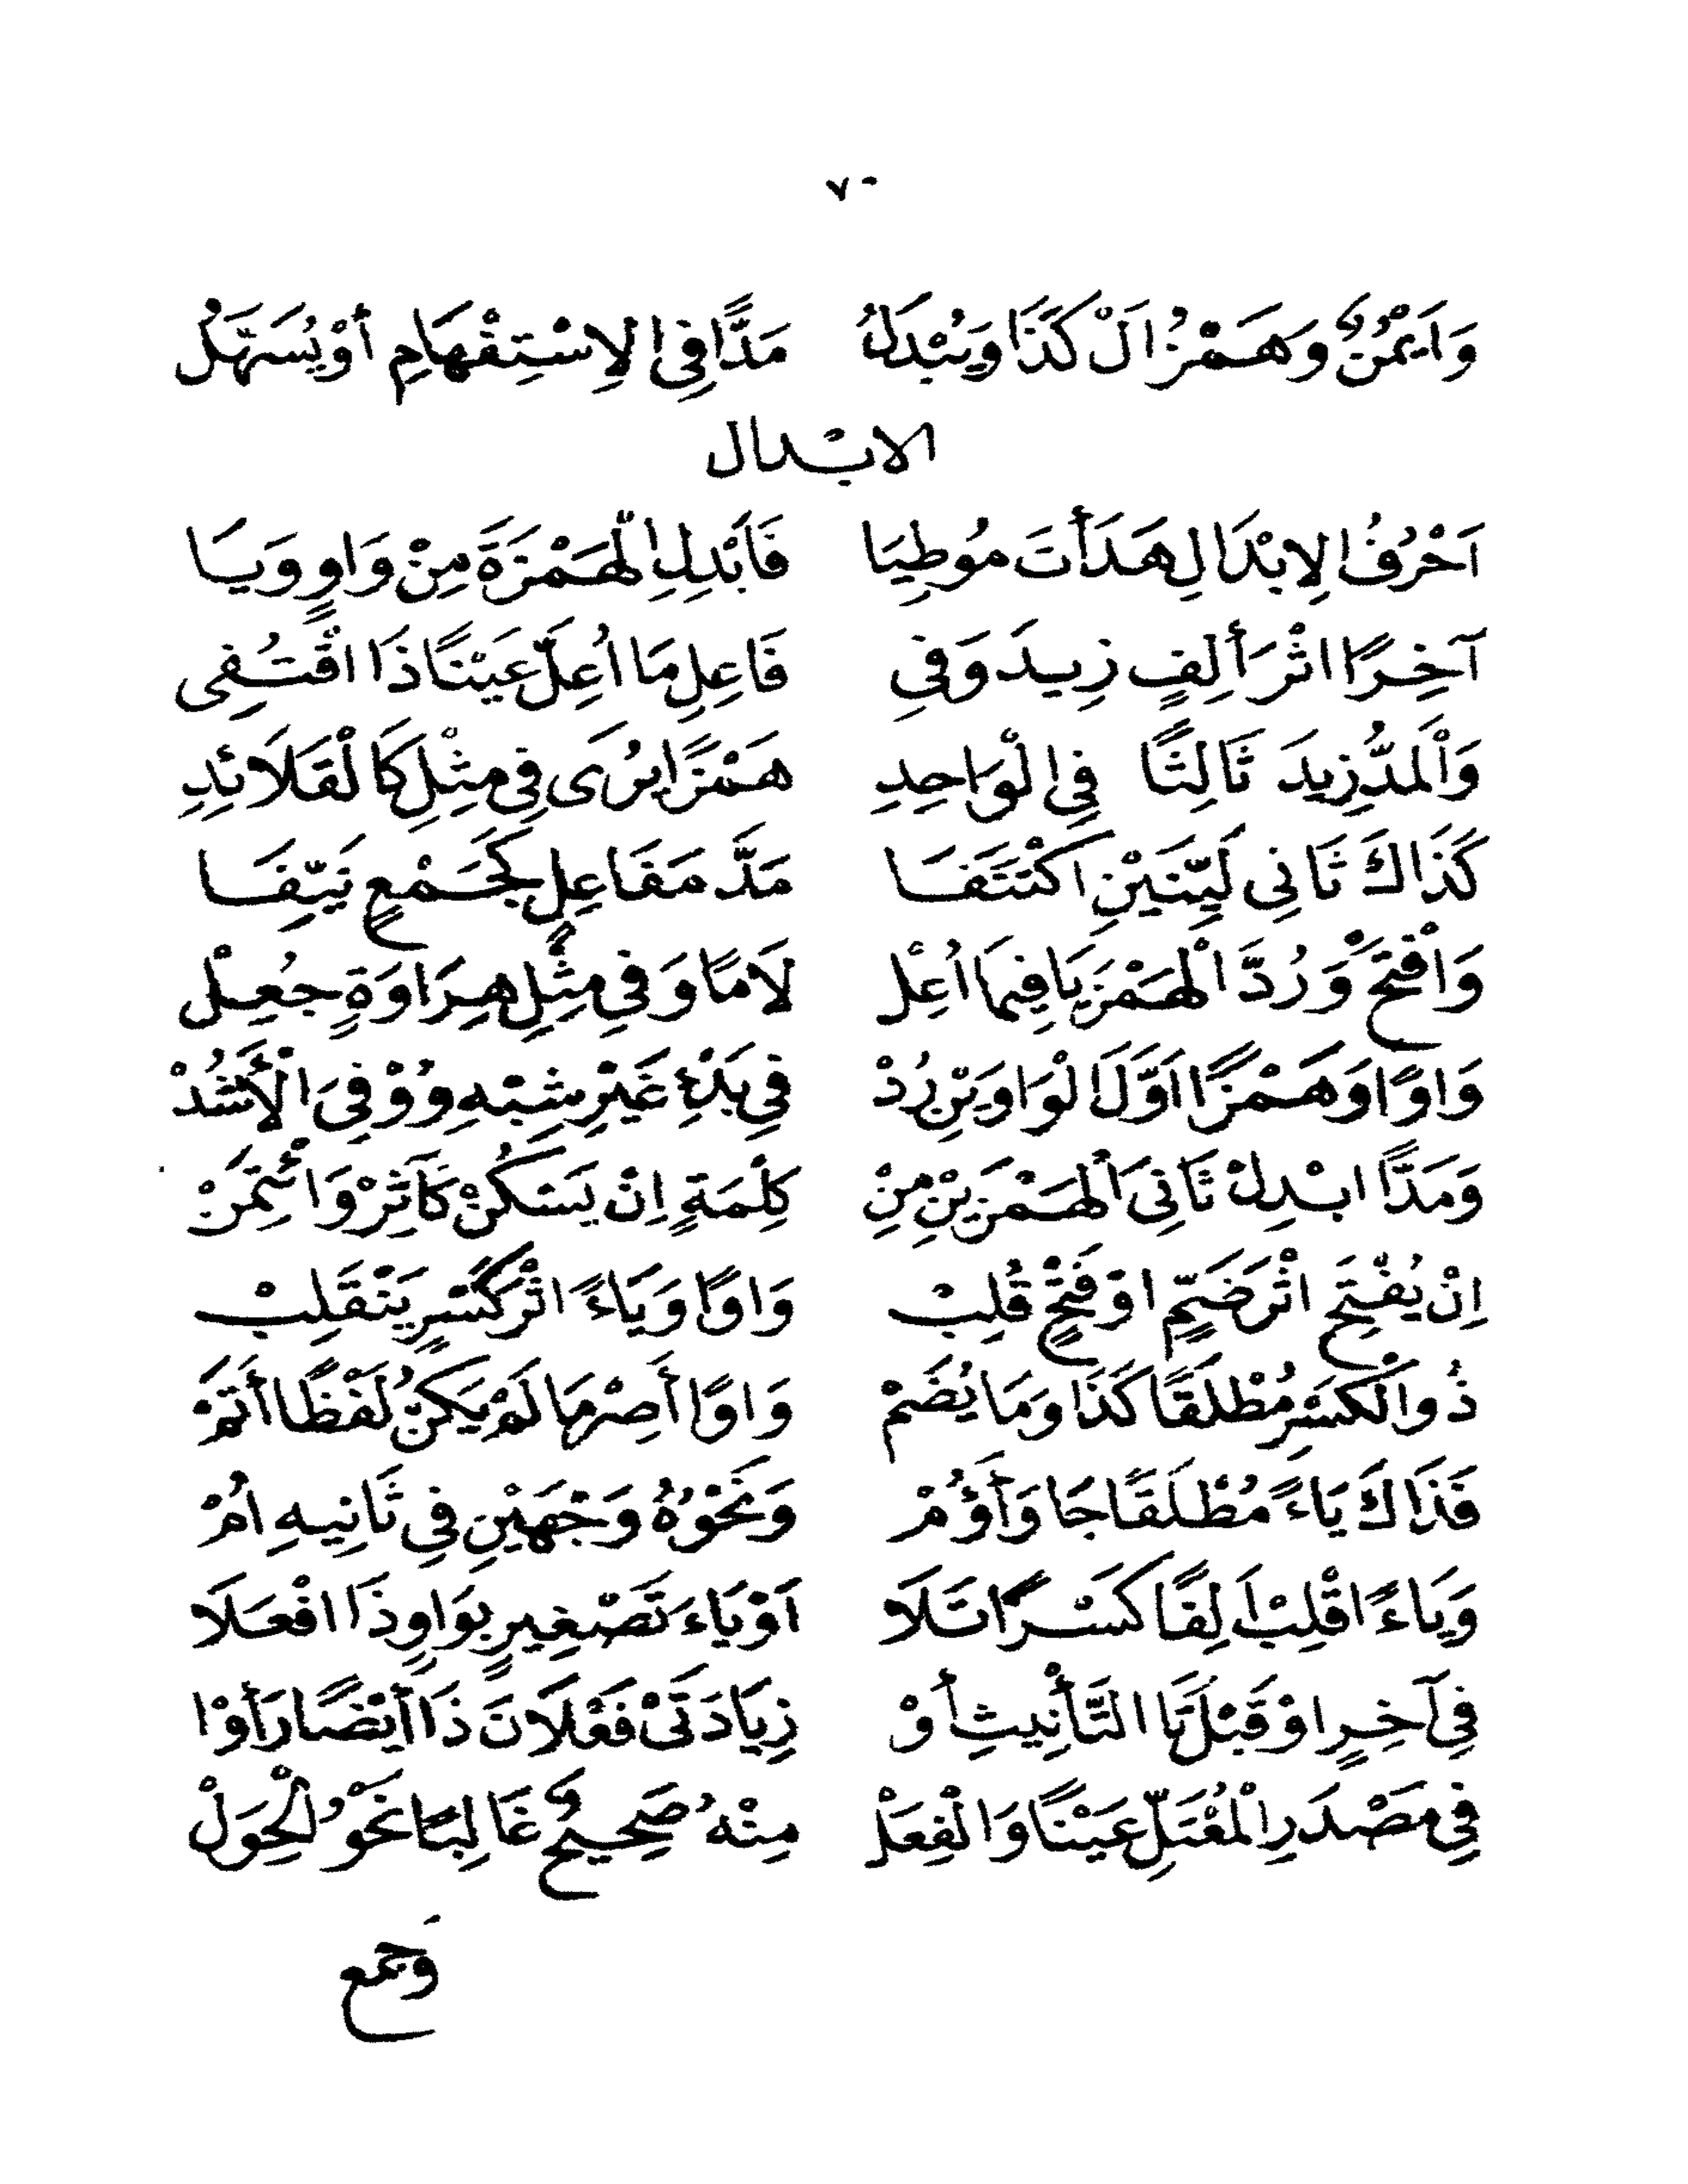 ٧٠
وَايْمُنُ وَهَمْزُ الْ كَذَا وَيُبْدَلُ مَدًّا فِي الِاسْتِفْهَامِ أَوْ يُسَهَّلُ
الابْدال
اَحْرُفُ الِابْدَالِ هَدَأْتَ مُوطِيَا فَابْدِلِ الْهَمْزَةَ مِنْ وَاوٍ وَيَا
آخِرًا اثْرَ أَلِفٍ زِيدَ وَفِي فَاعِلِ مَا اُعِلَّ عَيْنًا ذَا اقْتُفِى
وَالْمَدُّ زِيدَ ثَالِثًا فِي الْوَاحِدِ هَمْزًا يُرَى فِي مِثْلِ كَالْقَلَائِدِ
كَذَاكَ ثَانِى لَيِّنَيْنِ اكْتَنَفَا مَدَّ مَفَاعِلٍ كَجَمْعٍ نَيِّفَا
وَافْتَحْ وَرُدَّ الْهَمْزَ يَا فِيمَا اُعِلْ لَامًا وَفِي مِثْلِ هِرَاوَةٍ جُعِلْ
وَاوًا وَهَمْزًا اَوَّلَ الْوَاوَيْنِ رُدْ فِي بَدْءِ غَيْرِ شِبْهِ وُوْفِىَ الْأَشُدْ
وَمَدًّا ابْدِلْ ثَانِىَ الْهَمْزَيْنِ مِنْ كِلْمَةٍ اِنْ يَسْكُنْ كَآثِرْ وَائْتَمَنْ
اِنْ يُفْتَحِ اثْرَ ضَمٍّ اوْ فَتْحٍ قُلِبْ وَاوًا وَيَاءً اثْرَ كَسْرٍ يَنْقَلِبْ
ذُو الْكَسْرِ مُطْلَقًا كَذَا وَمَا يُضَمْ وَاوًا أَصِرْ مَا لَمْ يَكُنْ لَفْظًا أَتَمْ
فَذَاكَ يَاءً مُطْلَقًا جَا وَأَؤُمْ وَنَحْوُهُ وَجْهَيْنِ فِي ثَانِيهِ اُمْ
وَيَاءً اقْلِبْ اَلِفًا كَسْرًا تَلَا اَوْ يَاءَ تَصْغِيرٍ بِوَاوٍ ذَا افْعَلَا
فِي آخِرٍ اوْ قَبْلَ تَا التَّأْنِيثِ أَوْ زِيَادَتَىْ فَعْلَانَ ذَا أَيْضًا رَأَوْا
فِي مَصْدَرِ الْمُعْتَلِّ عَيْنًا وَالْفِعَلْ مِنْهُ صَحِيحٌ غَالِبًا نَحْوُ الْحِوَلْ
وَجمع